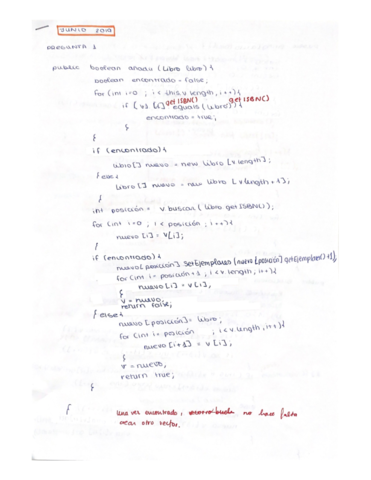 JUNIO 2019
PREGUNTA 1
public boolean añadir (Libro libro) {
boolean encontrado = false;
for (int i=0 ; i < this.v.length ; i++) {
if (v[i] getISBN() equals (libro)) { getISBN()
encontrado = true;
}
}
if (encontrado) {
Libro[] nuevo = new Libro [v.length];
} else {
Libro[] nuevo = new Libro [v.length + 1];
}
int posición = v.buscar (libro.getISBN());
for (int i=0 ; i < posición ; i++) {
nuevo[i] = v[i];
}
if (encontrado) {
nuevo[posición].setEjemplares (nuevo[posición].getEjemplares()+1);
for (int i = posición + 1 ; i < v.length ; i++) {
nuevo[i] = v[i];
}
v = nuevo;
return false;
} else {
nuevo[posición] = libro;
for (int i = posición ; i < v.length ; i++) {
nuevo[i+1] = v[i];
}
v = nuevo;
return true;
}
}
Una vez encontrado, no hace falta
crear otro vector.